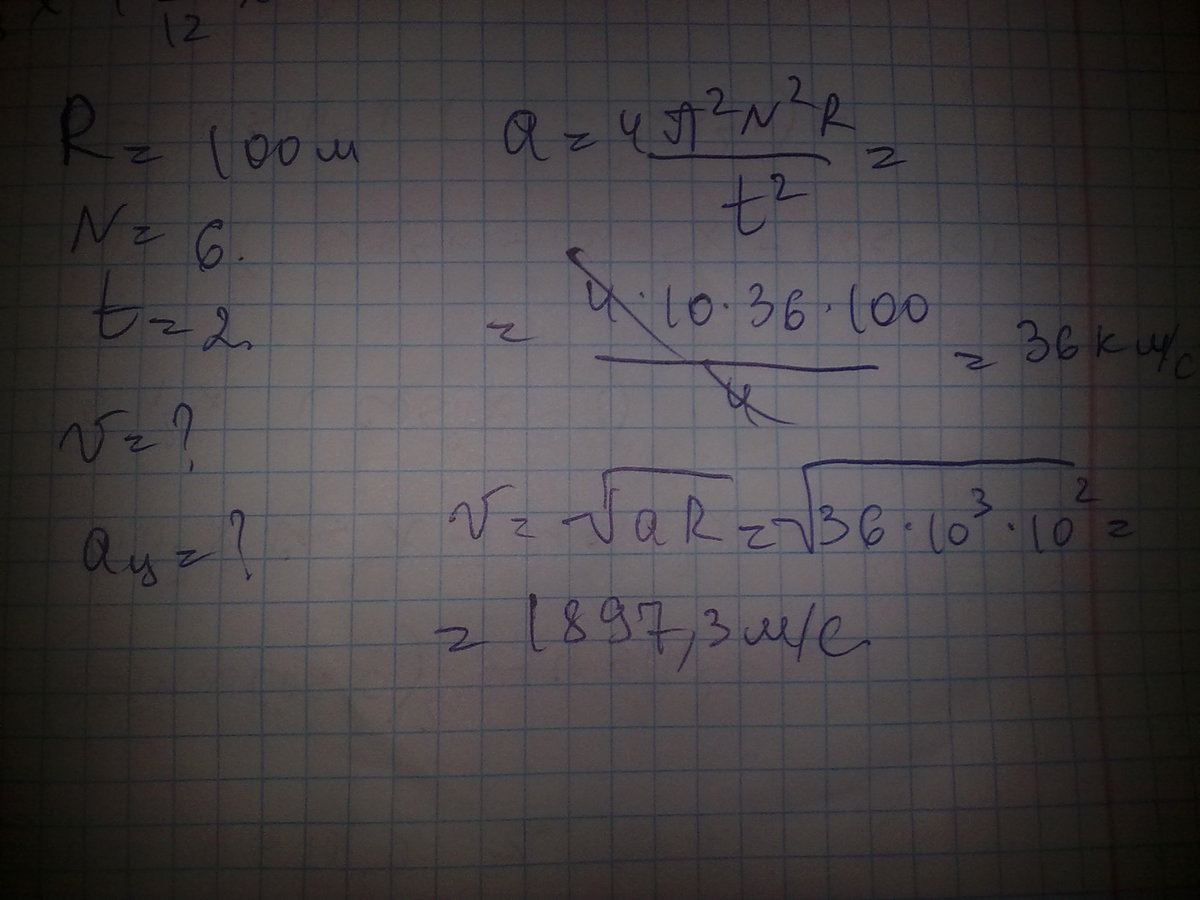 12
R = 100 м
N = 6.
t = 2
v = ?
aц = ?
a = 4π²N²R / t² =
= 4·10·36·100 / 4 = 36 км/с
v = √aR = √36·10³·10² =
= 1897,3 м/с